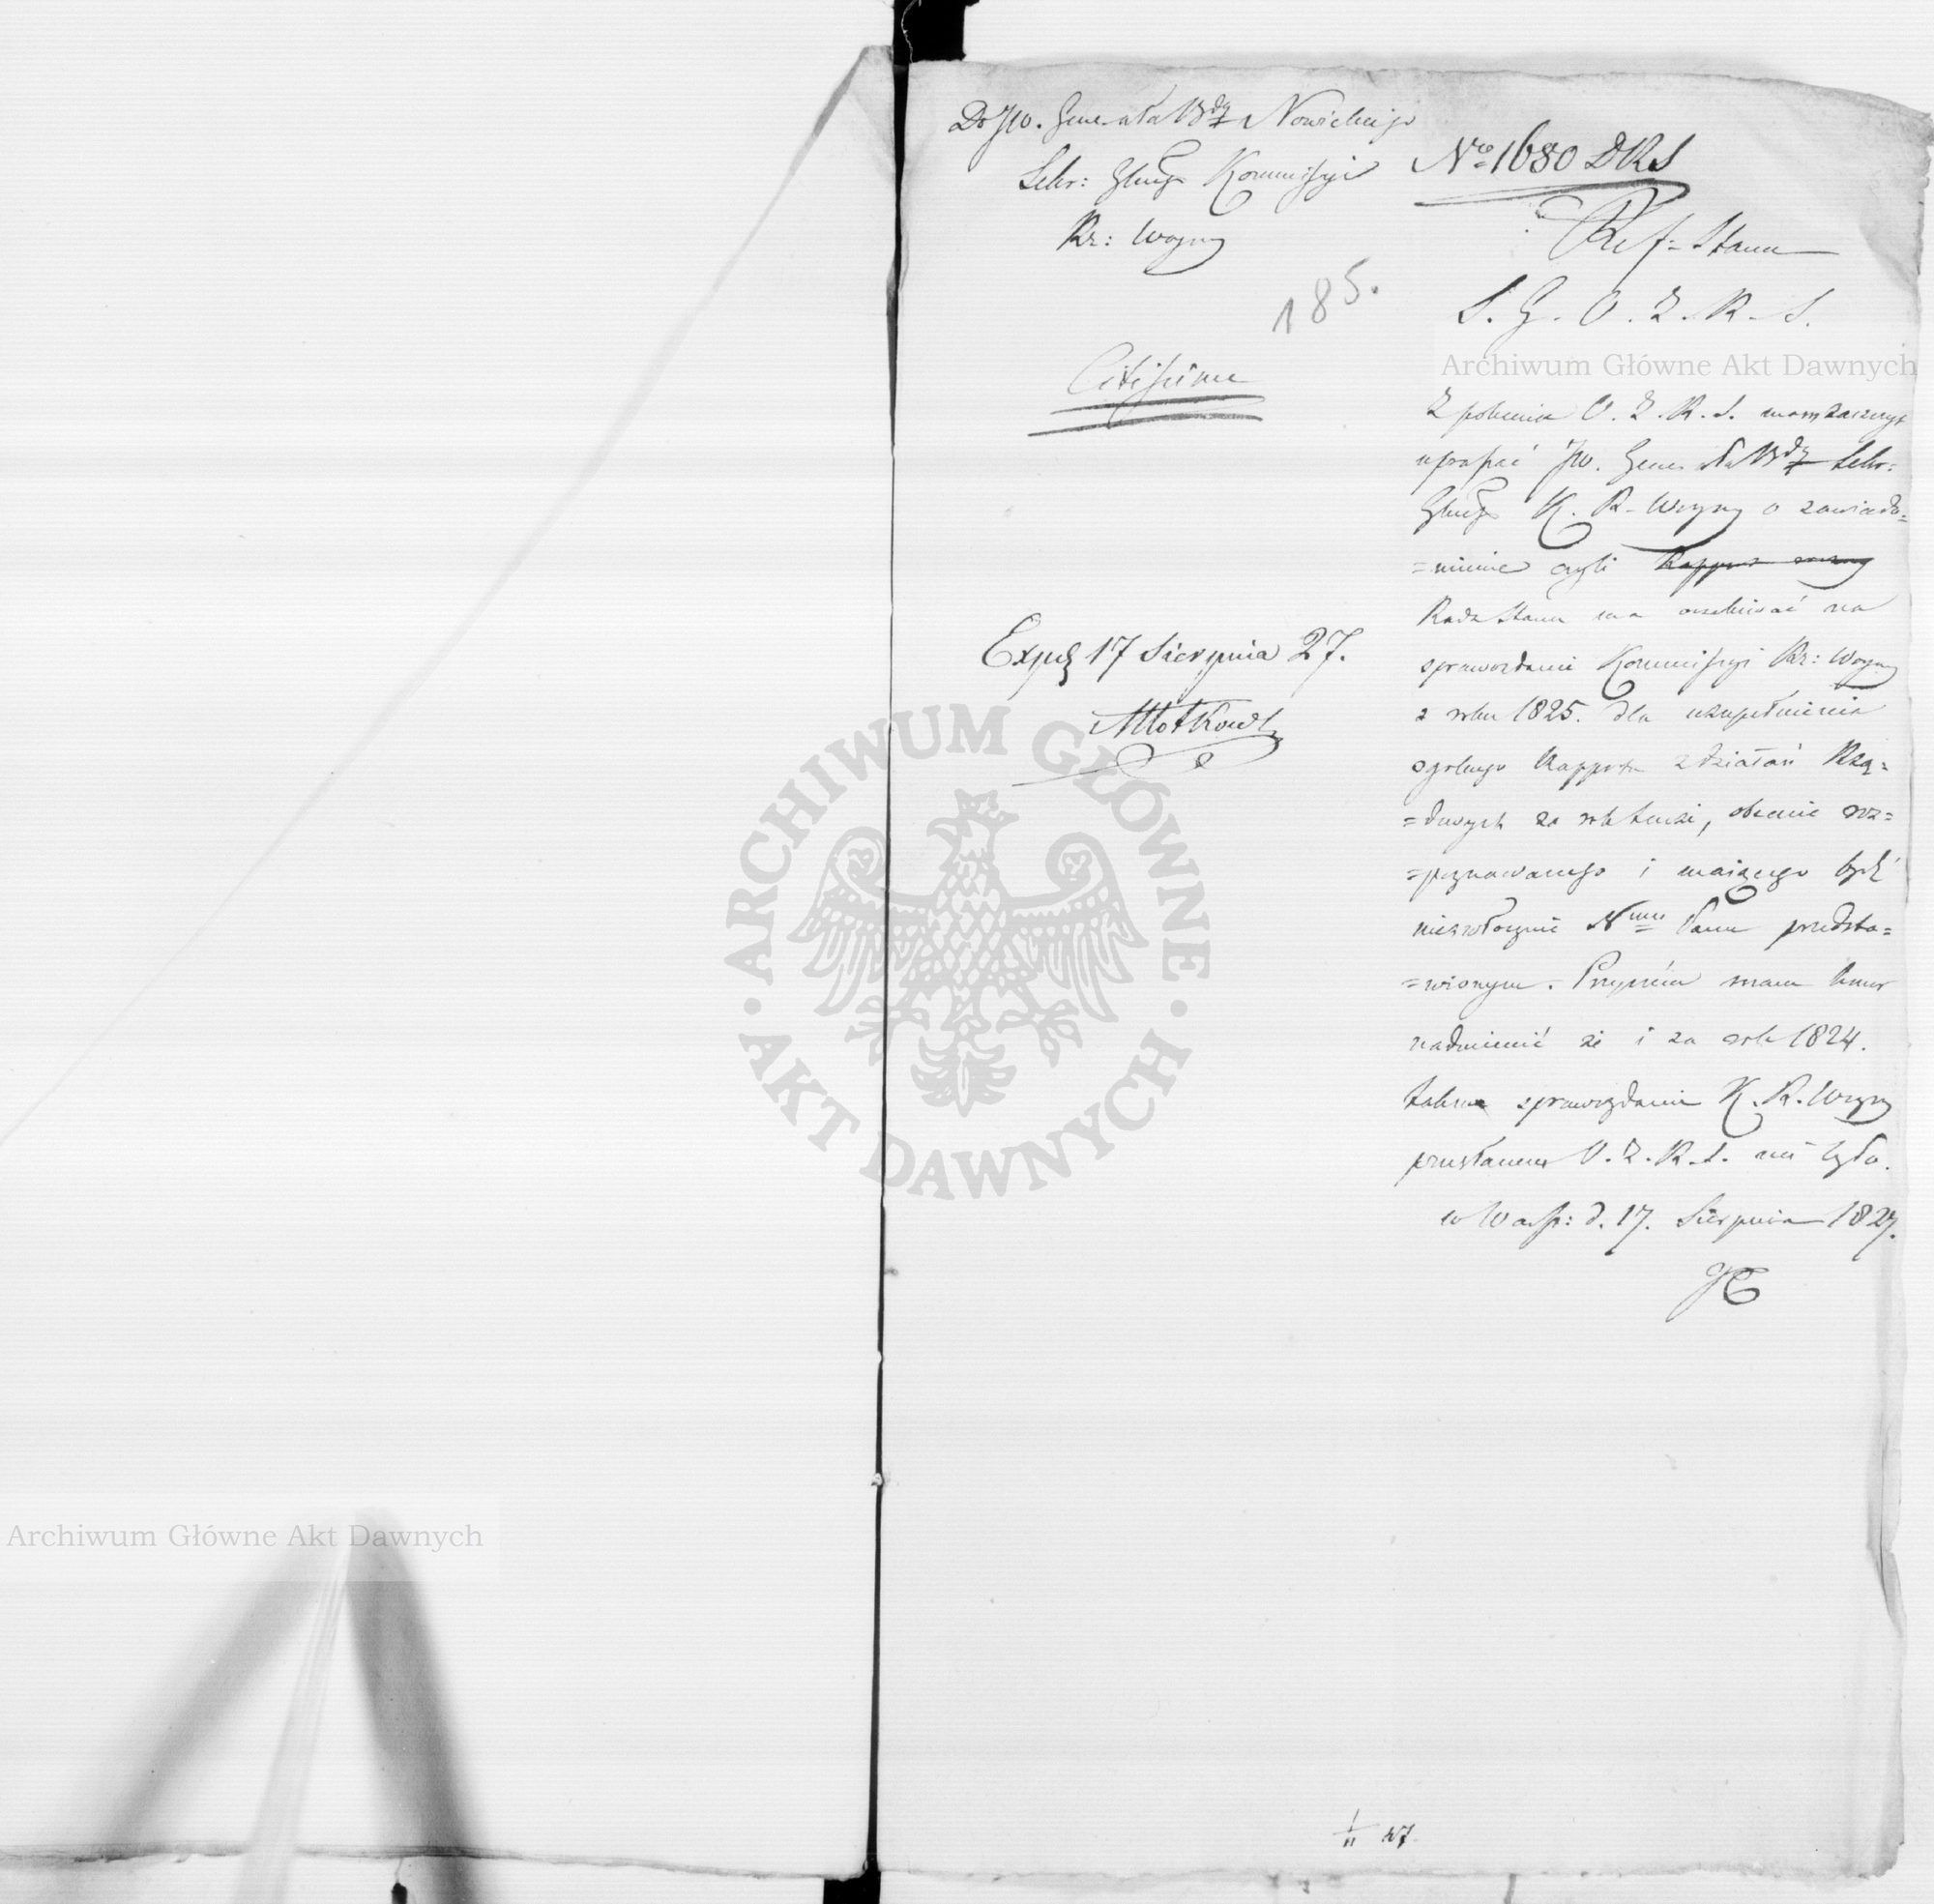 Do JW. Generała Bdy Nowickiego
Sekr: Głngo Kommissyi
Rz: Woyny
185.
Citissime
Exp 17 Sierpnia 27.
No 1680 DRS
Ref: Stanu
S. G. O. Z. R. S.
Archiwum Główne Akt Dawnych
Z polecenia O. Z. R. S. mam zaszczyt
uprasać JW. Generała Bdy Sekr:
Głngo K. R. Woyny o zawiado=
=mienie czyli Rapport
Rada Stanu ma oczekiwać na
sprawozdanie Kommissyi Rz: Woyny
z roku 1825. dla uzupełnienia
ogolnego Rapportu z działań Rzą=
=dowych za rok tenże, obecnie roz=
=poznawanego i maiącego bydź
niezwłocznie Nmu Panu przedsta=
=wionym. Przytem mam honor
nadmienić że i za rok 1824.
takowe sprawozdanie K. R. Woyny
przesłanem O. Z. R. S. nie było.
w Warsz: d. 17. Sierpnia 1827.
ARCHIWUM GŁÓWNE
AKT DAWNYCH
Archiwum Główne Akt Dawnych